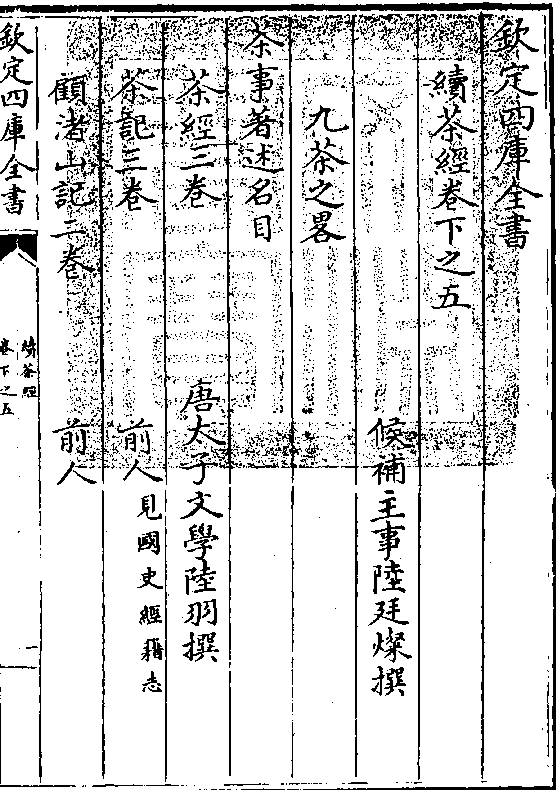 欽定四庫全書
續茶經卷下之五
候補主事陸廷燦撰
九茶之畧
茶事著述名目
茶經三卷 唐太子文學陸羽撰
茶記三卷 前人見國史經籍志
顧渚山記二卷 前人
欽定四庫全書
續茶經
卷下之五
一